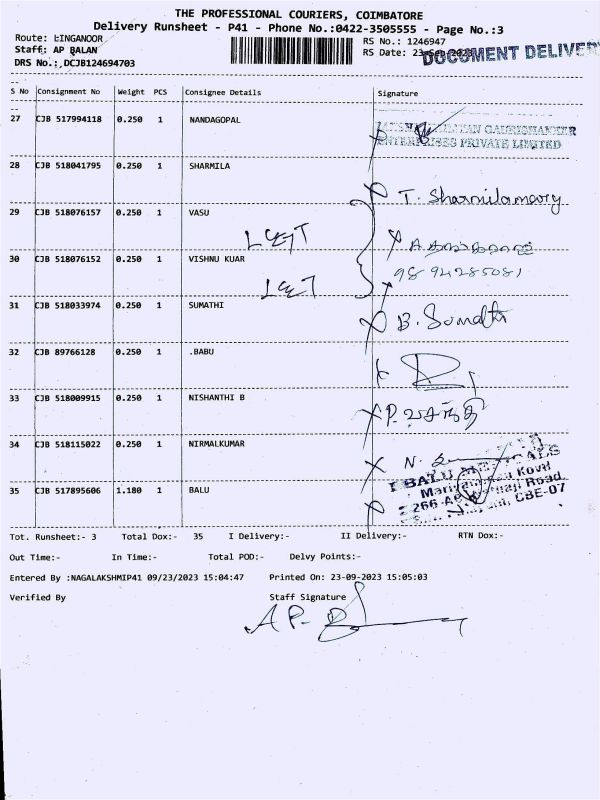 THE PROFESSIONAL COURIERS, COIMBATORE
Delivery Runsheet - P41 - Phone No.:0422-3505555 - Page No.:3
Route: LINGANOOR
RS No.: 1246947
Staff: AP BALAN
RS Date: 23-Sep-2023
DOCUMENT DELIVER
DRS No.:,DCJB124694703
S No Consignment No Weight PCS Consignee Details Signature
27 CJB 517994118 0.250 1 NANDAGOPAL
GAURISHANKER
ENTERPRISES PRIVATE LIMITED
28 CJB 518041795 0.250 1 SHARMILA
T. Sharmilamary
29 CJB 518076157 0.250 1 VASU
30 CJB 518076152 0.250 1 VISHNU KUAR
9894285081
31 CJB 518033974 0.250 1 SUMATHI
B. Sumathi
32 CJB 89766128 0.250 1 .BABU
33 CJB 518009915 0.250 1 NISHANTHI B
P. வசந்தி
34 CJB 518115022 0.250 1 NIRMALKUMAR
N.
35 CJB 517895606 1.180 1 BALU
BALU
Kovil
Road
CBE-07
Tot. Runsheet:- 3 Total Dox:- 35 I Delivery:- II Delivery:- RTN Dox:-
Out Time:- In Time:- Total POD:- Delvy Points:-
Entered By :NAGALAKSHMIP41 09/23/2023 15:04:47 Printed On: 23-09-2023 15:05:03
Verified By Staff Signature
AP-